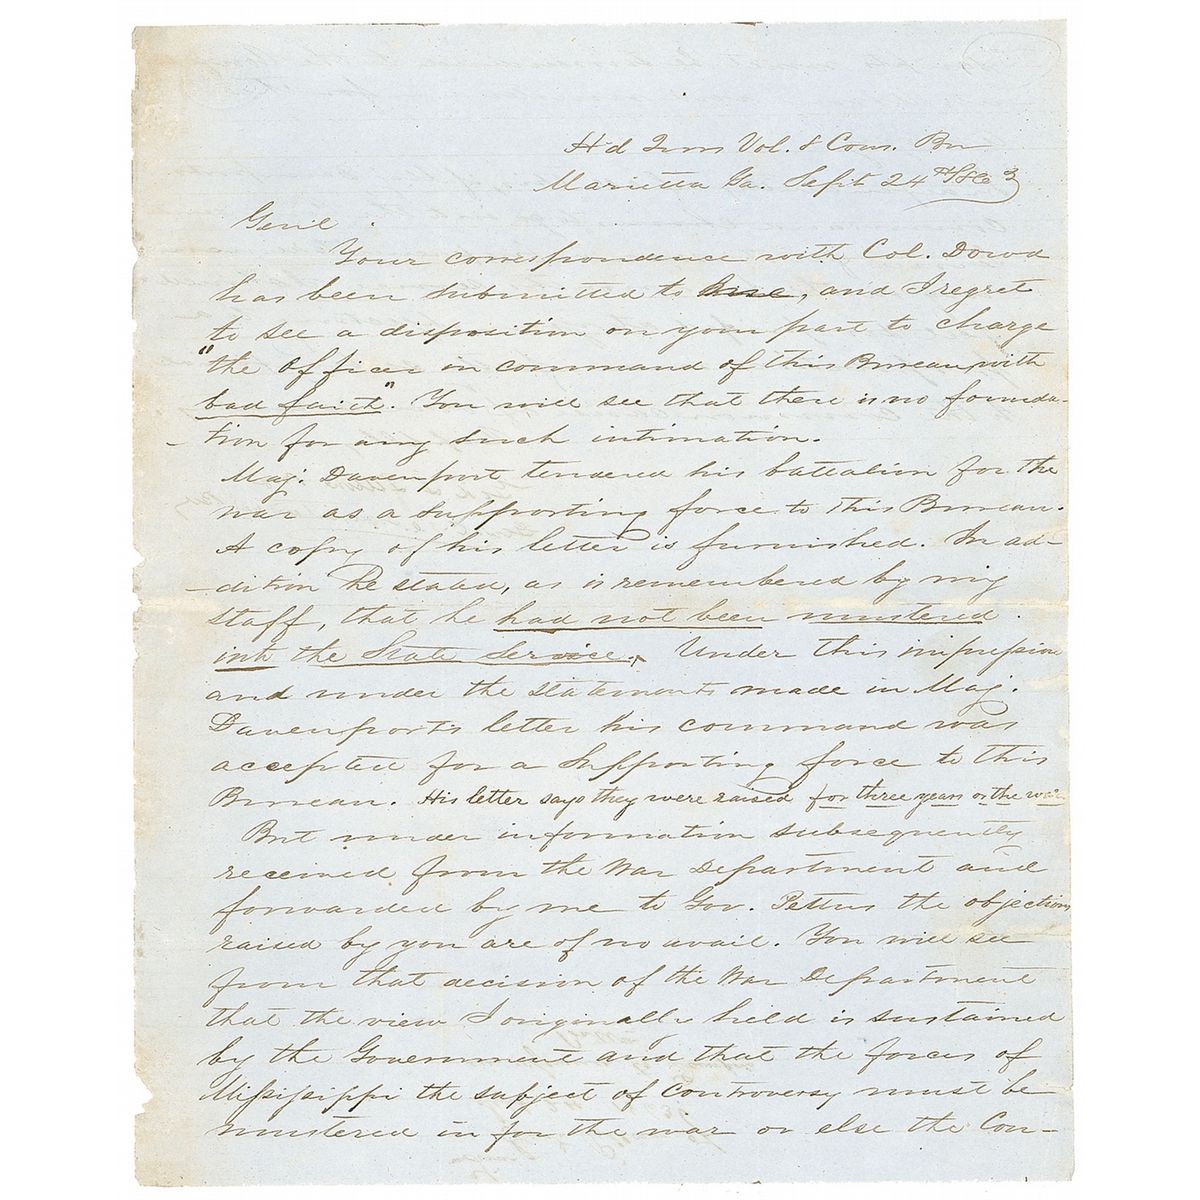 Hd Qrs Vol. & Cons. Bu
Marietta Ga. Sept 24th 1863
Genl
Your correspondence with Col. Dowd
has been submitted to, and I regret
to see a disposition on your part to charge
"the Officer in command of this Bureau with
bad faith". You will see that there is no founda-
-tion for any such intimation.
Maj. Davenport tendered his battalion for the
war as a supporting force to this Bureau.
A copy of his letter is furnished. In ad-
-dition he stated, as is remembered by my
staff, that he had not been mustered
into the State Service. Under this impression
and under the statements made in Maj.
Davenports letter his command was
accepted for a supporting force to this
Bureau. His letter says they were raised for three years or the war
But under information subsequently
received from the War Department and
forwarded by me to Gov. Pettus the objections
raised by you are of no avail. You will see
from that decision of the War Department
that the view I originally held is sustained
by the Government and that the forces of
Mississippi the subject of controversy must be
mustered in for the war or else the Con-